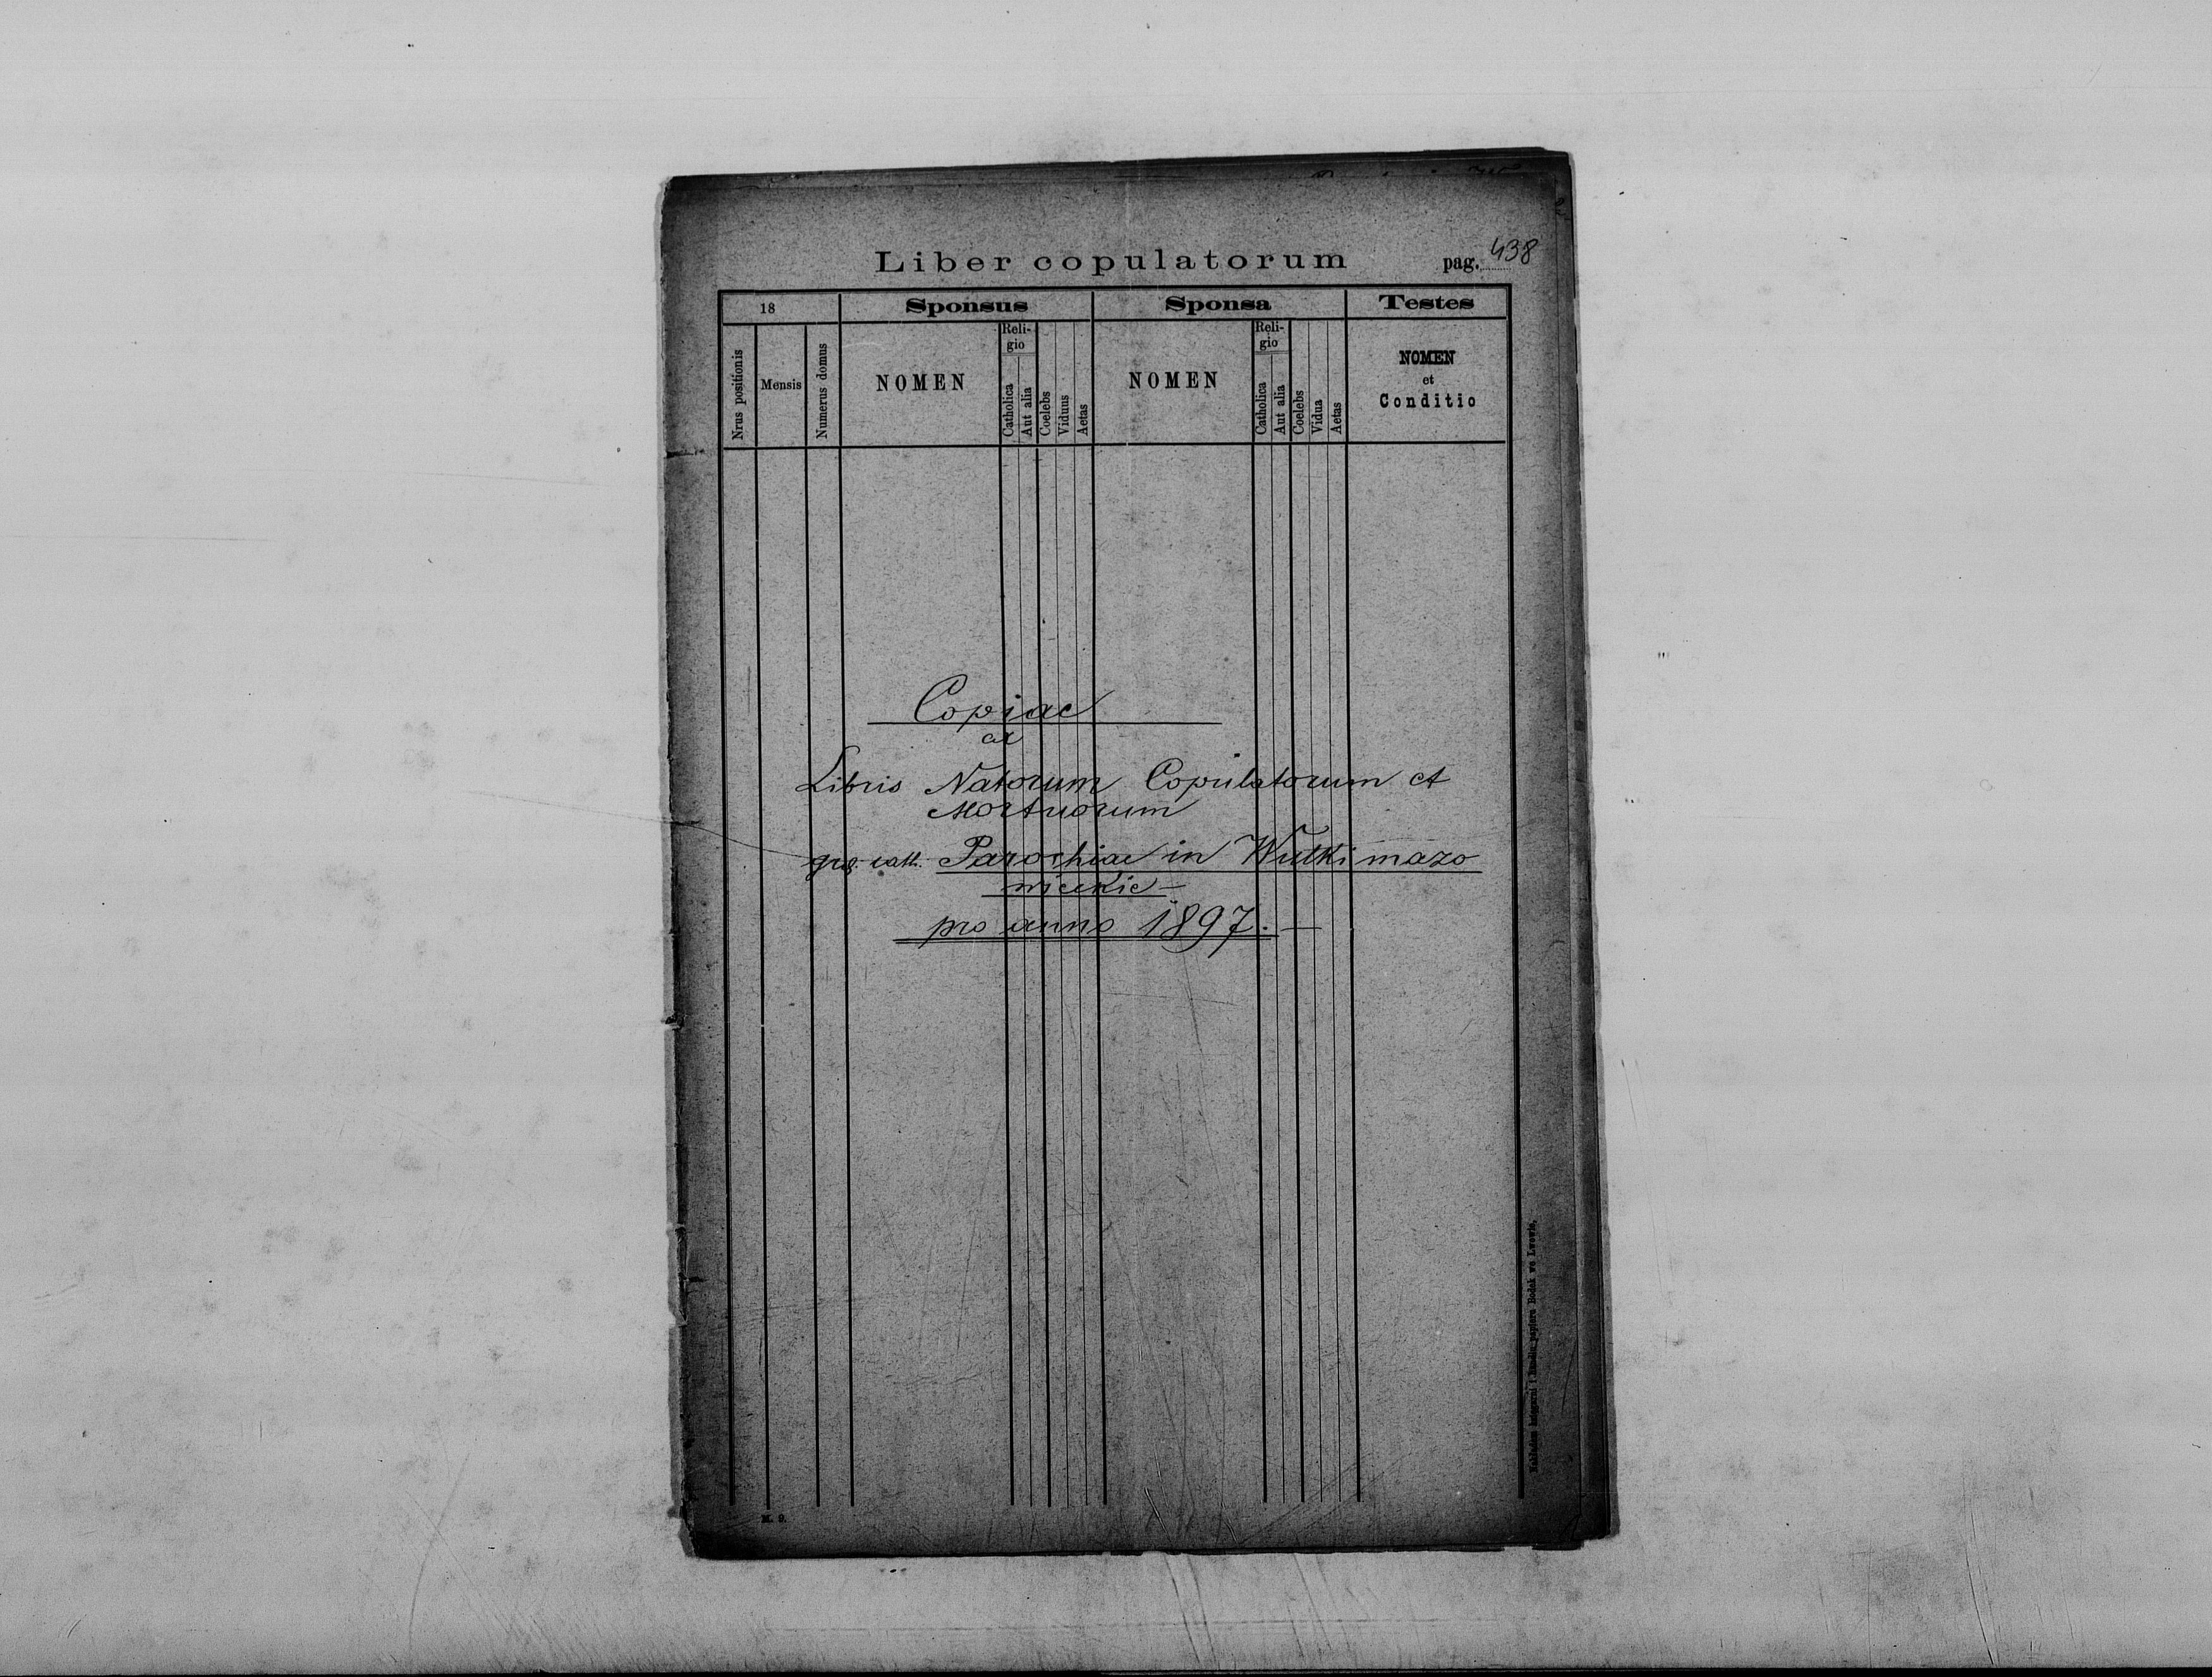 Liber copulatorum pag. 438
18 Sponsus Sponsa Testes
Nrus positionis Mensis Numerus domus NOMEN Religio Catholica Aut alia Coelebs Viduus Aetas NOMEN Religio Catholica Aut alia Coelebs Vidua Aetas NOMEN et Conditio
Copiae
ex
Libris Natorum Copulatorum et
Mortuorum
gr. cath. Parochiae in Wulki mazo
wieckie
pro anno 1897. —
M. 9.
Nakładem księgarni i handlu papieru Bodek we Lwowie.